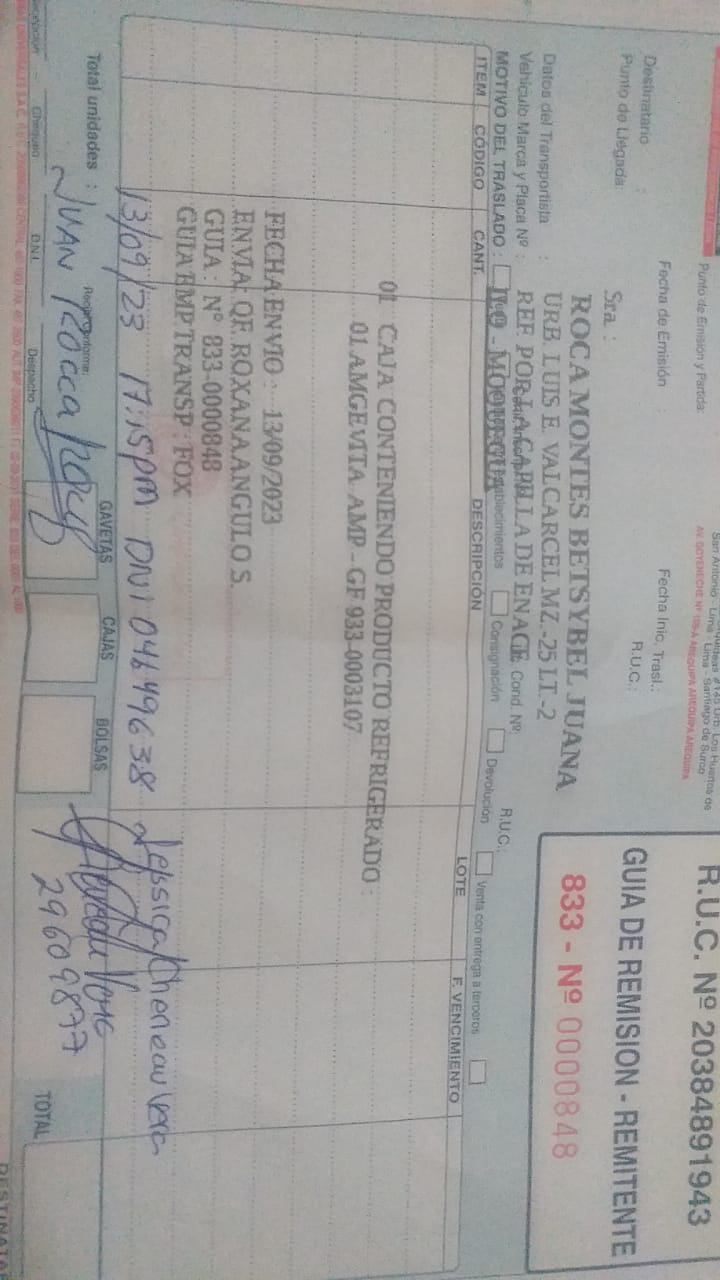 R.U.C. Nº 20384891943
GUIA DE REMISION - REMITENTE
833 - Nº 0000848
San Antonio - Lima - Lima - Santiago de Surco
AV. GOYENECHE Nº AREQUIPA AREQUIPA AREQUIPA
Punto de Emisión y Partida:
Fecha de Emisión :
Fecha Inic. Trasl.:
Destinatario :
R.U.C.:
Punto de Llegada:
Sra :
ROCA MONTES BETSYBEL JUANA
URB. LUIS E. VALCARCEL MZ.-25 LT.-2
REF. POR LA CAPILLA DE ENACE
ILO - MOQUEGUA
Datos del Transportista :
R.U.C.:
Vehículo Marca y Placa Nº :
Cond. Nº:
MOTIVO DEL TRASLADO :
Consignación
Devolución
Venta con entrega a terceros
ITEM CÓDIGO CANT. DESCRIPCIÓN LOTE F. VENCIMIENTO
01 CAJA CONTENIENDO PRODUCTO REFRIGERADO :
01 AMGEVITA AMP - GF 933-0003107
FECHA ENVIO : 13/09/2023
ENVIA: QF. ROXANA ANGULO S.
GUIA : Nº 833-0000848
GUIA EMP TRANSP : FOX
13/09/23 17:15pm DNI 04649638
29609877
GAVETAS CAJAS BOLSAS TOTAL
Total unidades :
Recibí Conforme:
JUAN ROCCA
Chequeo D.N.I. Despacho